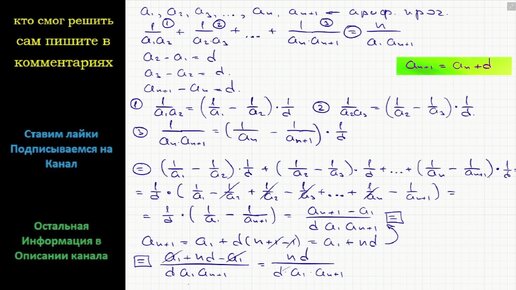 кто смог решить
сам пишите в
комментариях
Ставим лайки
Подписываемся на
Канал
Остальная
Информация в
Описании канала
a₁, a₂, a₃, ..., aₙ, aₙ₊₁ ← ариф. прог.
① ② ③
1/(a₁a₂) + 1/(a₂a₃) + ... + 1/(aₙ·aₙ₊₁) = n/(a₁·aₙ₊₁)
a₂ - a₁ = d
a₃ - a₂ = d.
aₙ₊₁ - aₙ = d.
aₙ₊₁ = aₙ + d
① 1/(a₁a₂) = (1/a₁ - 1/a₂)·1/d ② 1/(a₂a₃) = (1/a₂ - 1/a₃)·1/d.
③ 1/(aₙ·aₙ₊₁) = (1/aₙ - 1/aₙ₊₁)·1/d
= (1/a₁ - 1/a₂)·1/d + (1/a₂ - 1/a₃)·1/d + ... + (1/aₙ - 1/aₙ₊₁)·1/d
= 1/d·(1/a₁ - 1/a₂ + 1/a₂ - 1/a₃ + ... + 1/aₙ - 1/aₙ₊₁) =
= 1/d·(1/a₁ - 1/aₙ₊₁) = (aₙ₊₁ - a₁)/(d a₁ aₙ₊₁) =
aₙ₊₁ = a₁ + d(n+1-1) = a₁ + nd
= (a₁ + nd - a₁)/(d a₁ aₙ₊₁) = nd/(d a₁·aₙ₊₁)